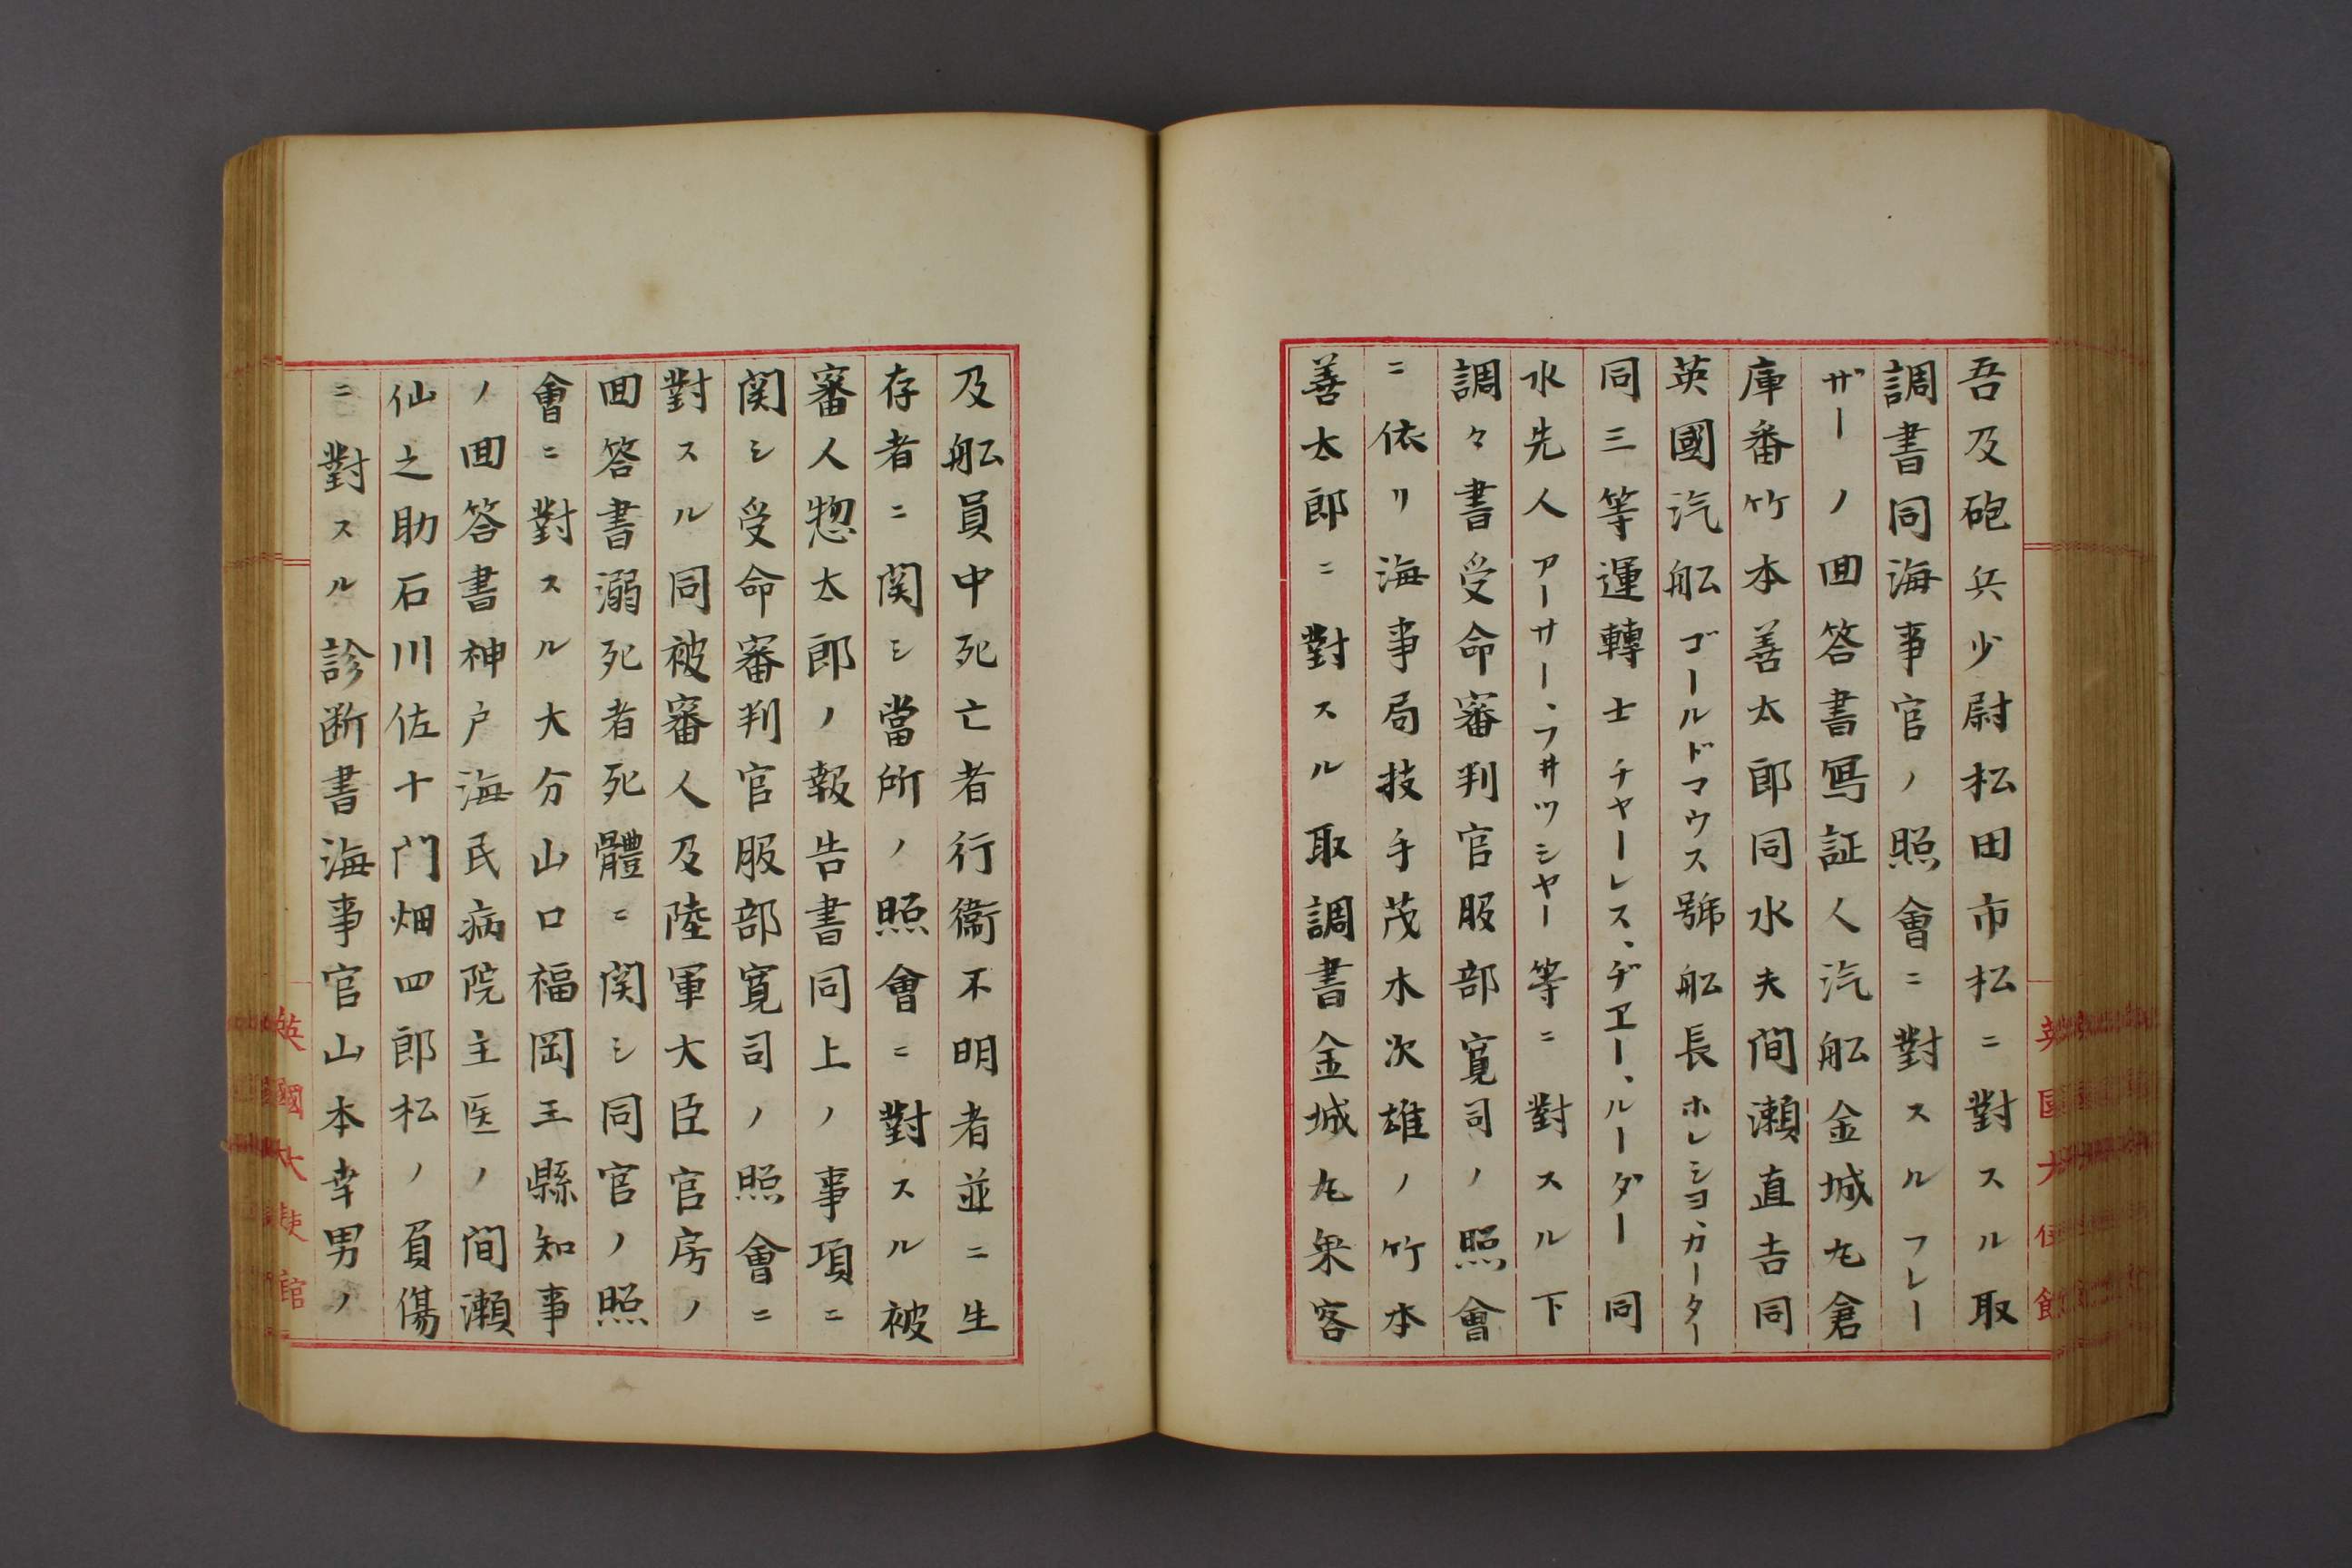 吾及砲兵少尉松田市松ニ對スル取
調書同海事官ノ照會ニ對スルフレー
ザーノ囬答書寫証人汽舩金城丸倉
庫番竹本善太郎同水夫間瀬直吉同
英國汽舩ゴールドマウス號舩長ホレシヨ、カーター
同三等運轉士チヤーレス、ヂエー、ルーダー同
水先人アーサー、フ井ツシヤー等ニ對スル下
調々書受命審判官服部寛司ノ照會
ニ依リ海事局技手茂木次雄ノ竹本
善太郎ニ對スル取調書金城丸乗客
及舩員中死亡者行衞不明者並ニ生
存者ニ関シ當所ノ照會ニ對スル被
審人惣太郎ノ報告書同上ノ事項ニ
関シ受命審判官服部寛司ノ照會ニ
對スル同被審人及陸軍大臣官房ノ
囬答書溺死者死體ニ関シ同官ノ照
會ニ對スル大分山口福岡三縣知事
ノ囬答書神戸海民病院主医ノ間瀬
仙之助石川佐十門畑四郎松ノ負傷
ニ對スル診断書海事官山本幸男ノ
英國大使館
英國大使館